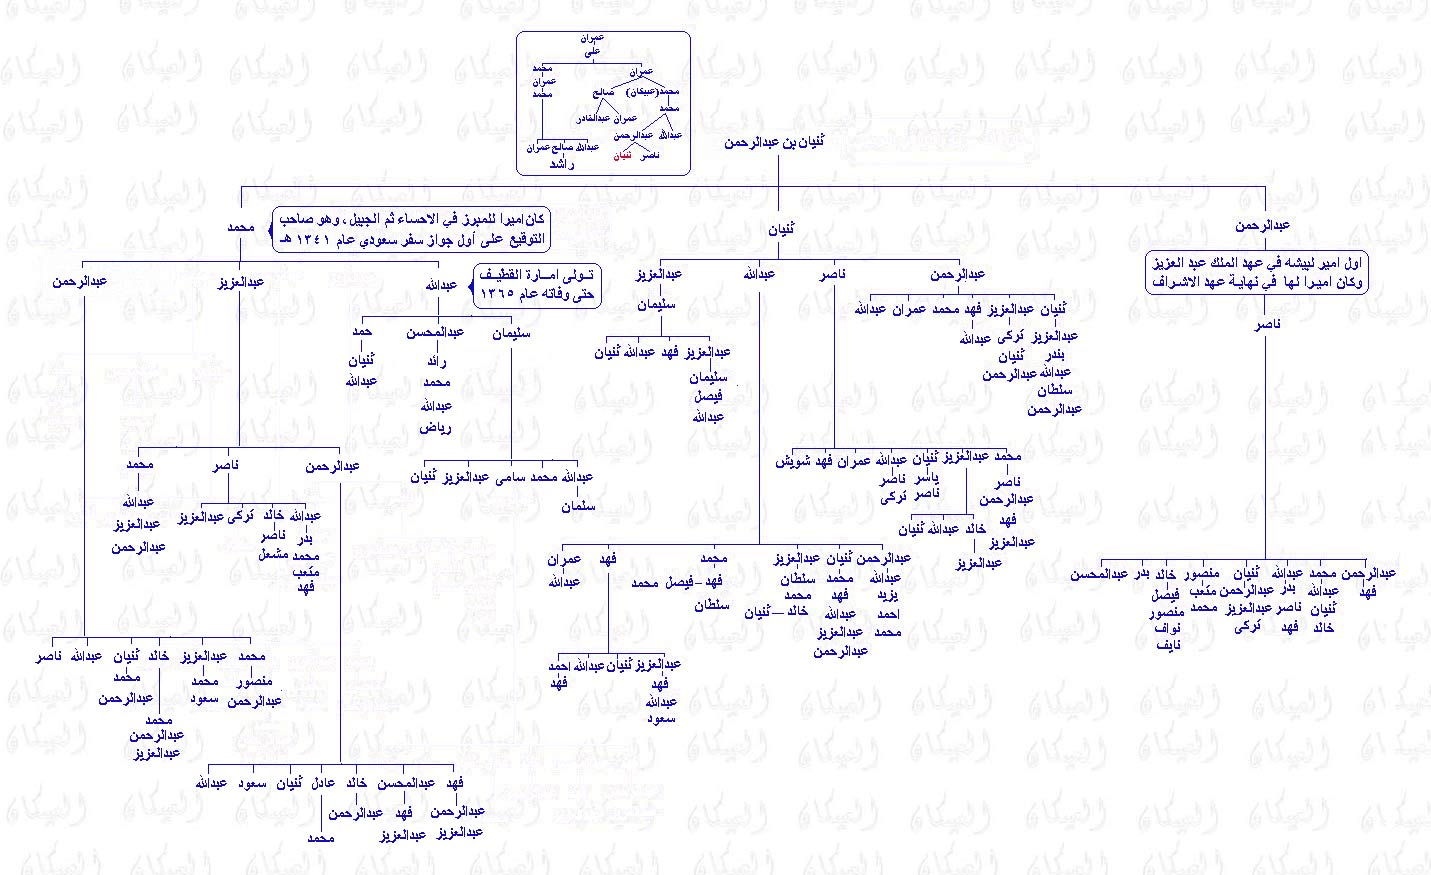 عمران
على
محمد عمران
عمران
محمد(عبيكان) صالح
محمد
محمد
عمران عبدالقادر
عبدالله عبدالرحمن
عبدالله صالح عمران
ناصر ثنيان
راشد
ثنيان بن عبدالرحمن
عبدالرحمن
ثنيان
محمد
كان اميرا للمبرز في الاحساء ثم الجبيل ، وهو صاحب
التوقيع على أول جواز سفر سعودي عام ١٣٤١ هـ
اول امير لبيشه في عهد الملك عبد العزيز
وكان اميرا لها في نهاية عهد الاشراف
ناصر
عبدالرحمن محمد عبدالله ثنيان منصور خالد بدر عبدالمحسن
فهد عبدالله بدر عبدالرحمن متعب فيصل
ثنيان ناصر عبدالعزيز محمد منصور
خالد فهد تركى نواف
نايف
عبدالرحمن ناصر عبدالله عبدالعزيز
ثنيان عبدالعزيز فهد محمد عمران عبدالله
عبدالعزيز تركى عبدالله
بندر ثنيان
عبدالله عبدالرحمن
سلطان
عبدالرحمن
محمد عبدالعزيز ثنيان عبدالله عمران فهد شويش
ناصر ياسر ناصر
عبدالرحمن ناصر تركى
فهد
عبدالعزيز
خالد عبدالله ثنيان
عبدالعزيز
عبدالرحمن ثنيان عبدالعزيز محمد فهد عمران
عبدالله محمد سلطان فهد – فيصل محمد عبدالله
يزيد فهد محمد سلطان
احمد عبدالله خالد – ثنيان
محمد عبدالعزيز
عبدالرحمن
عبدالعزيز ثنيان عبدالله احمد
فهد فهد
عبدالله
سعود
سليمان
عبدالعزيز فهد عبدالله ثنيان
سليمان
فيصل
عبدالله
عبدالله عبدالعزيز عبدالرحمن
تولى امارة القطيف
حتى وفاته عام ١٣٦٥
سليمان عبدالمحسن حمد
رائد ثنيان
محمد عبدالله
عبدالله
رياض
عبدالله محمد سامى عبدالعزيز ثنيان
سلمان
عبدالرحمن ناصر محمد
عبدالله خالد تركى عبدالعزيز عبدالله
بدر ناصر عبدالعزيز
محمد مشعل عبدالرحمن
متعب
فهد
فهد عبدالمحسن خالد عادل ثنيان سعود عبدالله
عبدالرحمن فهد عبدالرحمن محمد
عبدالعزيز عبدالعزيز
محمد عبدالعزيز خالد ثنيان عبدالله ناصر
منصور محمد محمد محمد
عبدالرحمن سعود عبدالرحمن عبدالرحمن
عبدالعزيز
العبيكان